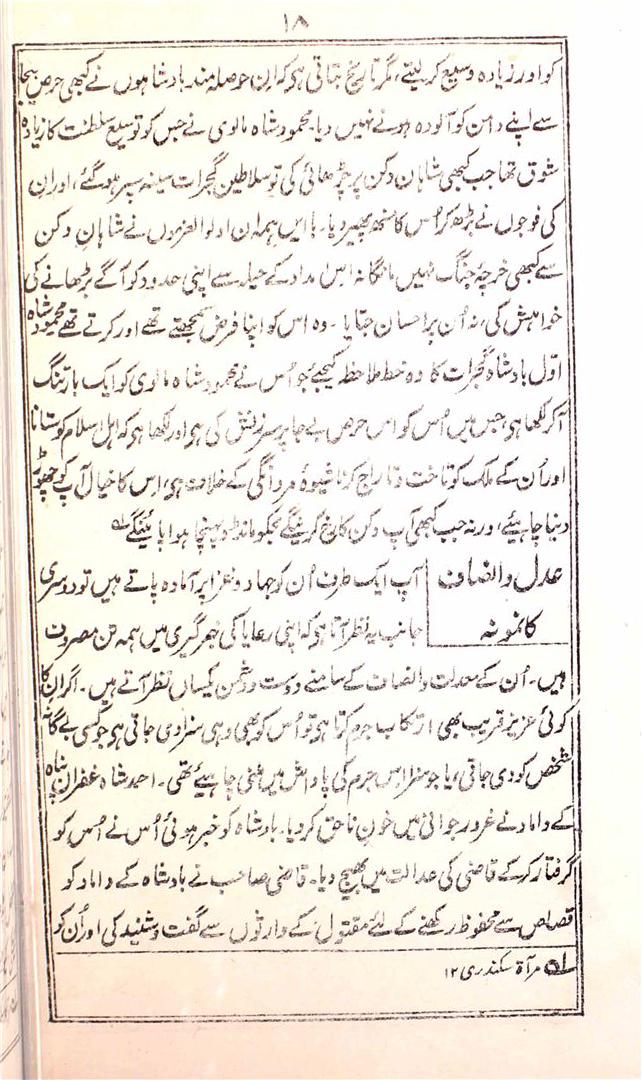 ۱۸
کو اور زیادہ وسیع کر لیتے، مگر تاریخ بتاتی ہو کہ ان حوصلہ مند بادشاہوں نے کبھی حرص بیجا
سے اپنے دامن کو آلودہ ہونے نہیں دیا۔ محمود شاہ مالوی نے جس کو توسیع سلطنت کا زیادہ
شوق تھا جب کبھی شاہان دکن پر چڑھائی کی تو سلاطین گجرات سینہ سپر ہو گئے، اور ان
کی فوجوں نے بڑھ کر اُس کا منھ پھیر دیا۔ با ایں ہمہ ان اولوالعزموں نے شاہان دکن
سے کبھی خرچۂ جنگ نہیں مانگا نہ اس امداد کے حیلہ سے اپنی حدود کو آگے بڑھانے کی
خواہش کی، نہ اُن پر احسان جتایا۔ وہ اس کو اپنا فرض سمجھتے تھے اور کرتے تھے محمود شاہ
اوّل بادشاہ گجرات کا وہ خط ملاحظہ کیجیے جو اُس نے محمود شاہ مالوی کو ایک بار تنگ
آکر لکھا ہی جس میں اُس کو اس حرص بے جا پر سرزنش کی ہی اور لکھا ہو کہ اہل اسلام کو ستانا
اور اُن کے ملک کو تاخت و تاراج کرنا شیوۂ مردانگی کے خلاف ہی، اس کا خیال آپ کو چھوڑ
دینا چاہیئے، ورنہ جب کبھی آپ دکن کا رخ کرینگے مجکو مانڈو پہنچا ہوا پائینگے ؎۱
عدل و انصاف کا نمونہ
آپ ایک طرف اُن کو جہاد و غزا پر آمادہ پاتے ہیں تو دوسری
جانب یہ نظر آتا ہو کہ اپنی رعایا کی خبر گیری میں ہمہ تن مصروف
ہیں۔ اُن کے معدلت و انصاف کے سامنے دوست و دشمن یکساں نظر آتے ہیں۔ اگر ان کا
کوئی عزیز قریب بھی ارتکاب جرم کرتا ہی تو اُس کو بھی وہی سزا دی جاتی ہی جو کسی بے گانہ
شخص کو دی جاتی، یا جو سزا اس جرم کی پاداش میں ملنی چاہیئے تھی۔ احمد شاہ غفران پناہ
کے داماد نے غرور جوانی میں خون ناحق کر دیا۔ بادشاہ کو خبر ہوئی اُس نے اُس کو
گرفتار کر کے قاضی کی عدالت میں بھیج دیا۔ قاضی صاحب نے بادشاہ کے داماد کو
قصاص سے محفوظ رکھنے کے لئے مقتول کے وارثوں سے گفت و شنید کی اور اُن کو
؎۱ مرآۃ سکندری ۱۲